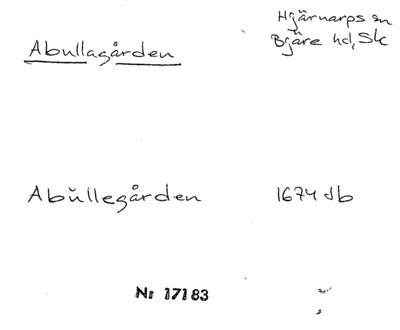 Abullagården
Hjärnarps sn
Bjäre hd, Sk
Abŭllegården 1674 Jb
Nr 17183